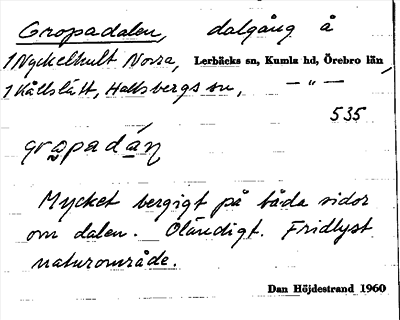 Gropadalen, dalgång å
1 Nyckelhult Norra, Lerbäcks sn, Kumla hd, Örebro län,
1 Kållslätt, Hallsbergs sn, —"—
535
gropadán
Mycket bergigt på båda sidor
om dalen. Oländigt. Fridlyst
naturområde.
Dan Höjdestrand 1960